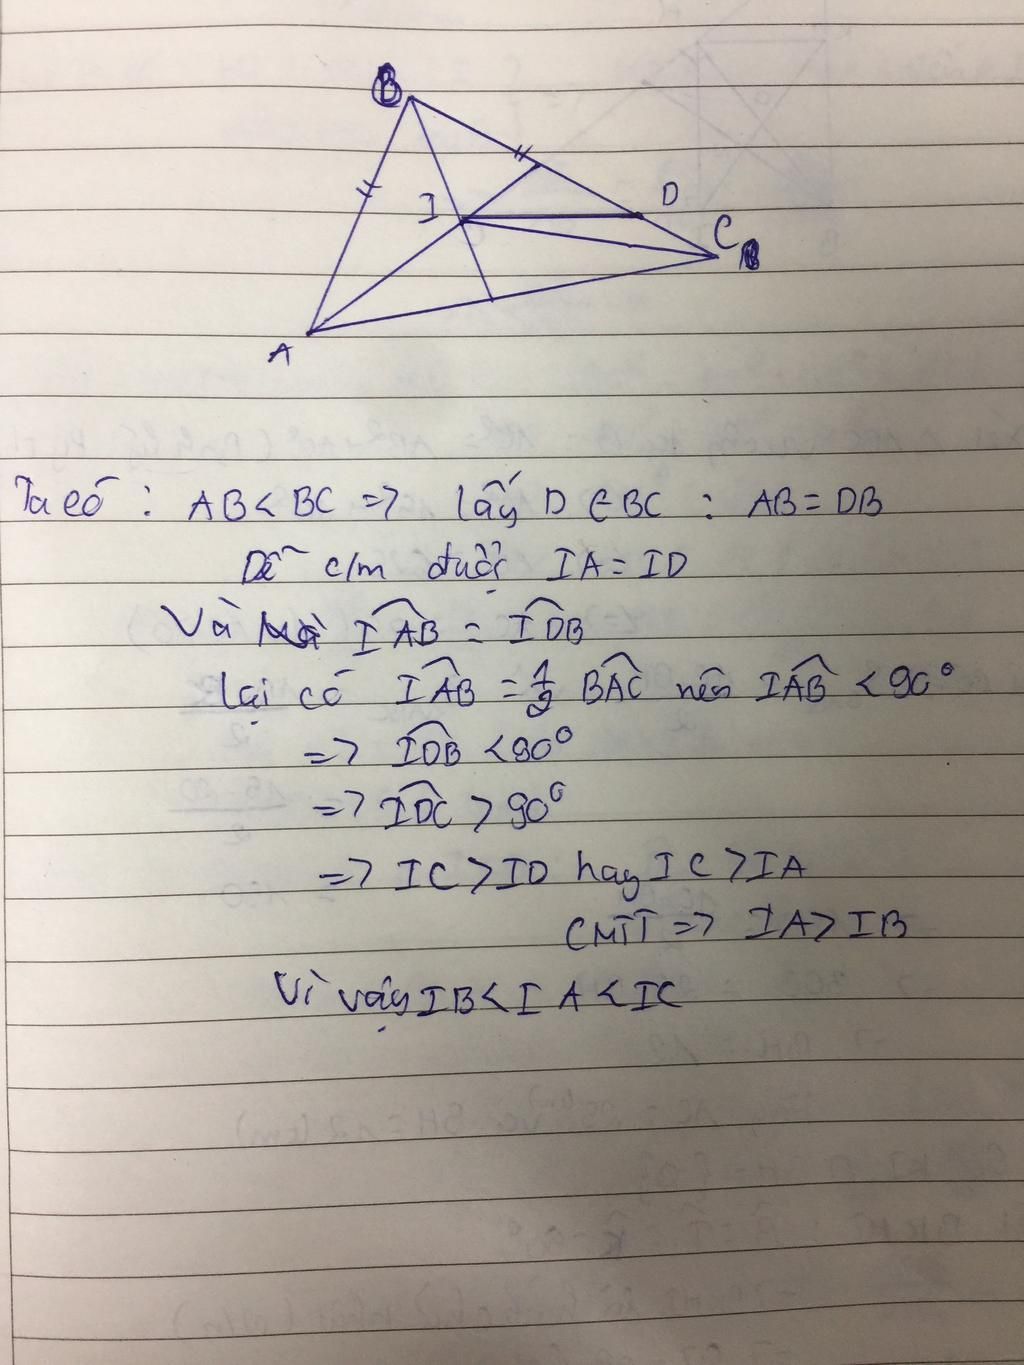 B
I
D
C
A
Ta có : AB < BC => lấy D ∈ BC : AB = DB
Dễ c/m được IA = ID
Và $\widehat{IAB}$ = $\widehat{IDB}$
lại có $\widehat{IAB}$ = $\frac{1}{2}$ $\widehat{BAC}$ nên $\widehat{IAB}$ < 90°
=> $\widehat{IDB}$ < 90°
=> $\widehat{IDC}$ > 90°
=> IC > ID hay IC > IA
CMTT => IA > IB
Vì vậy IB < IA < IC